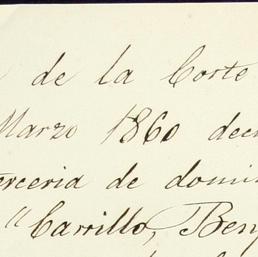 de la Corte
Marzo 1860 decr
erceria de domin
"Carrillo, Benj